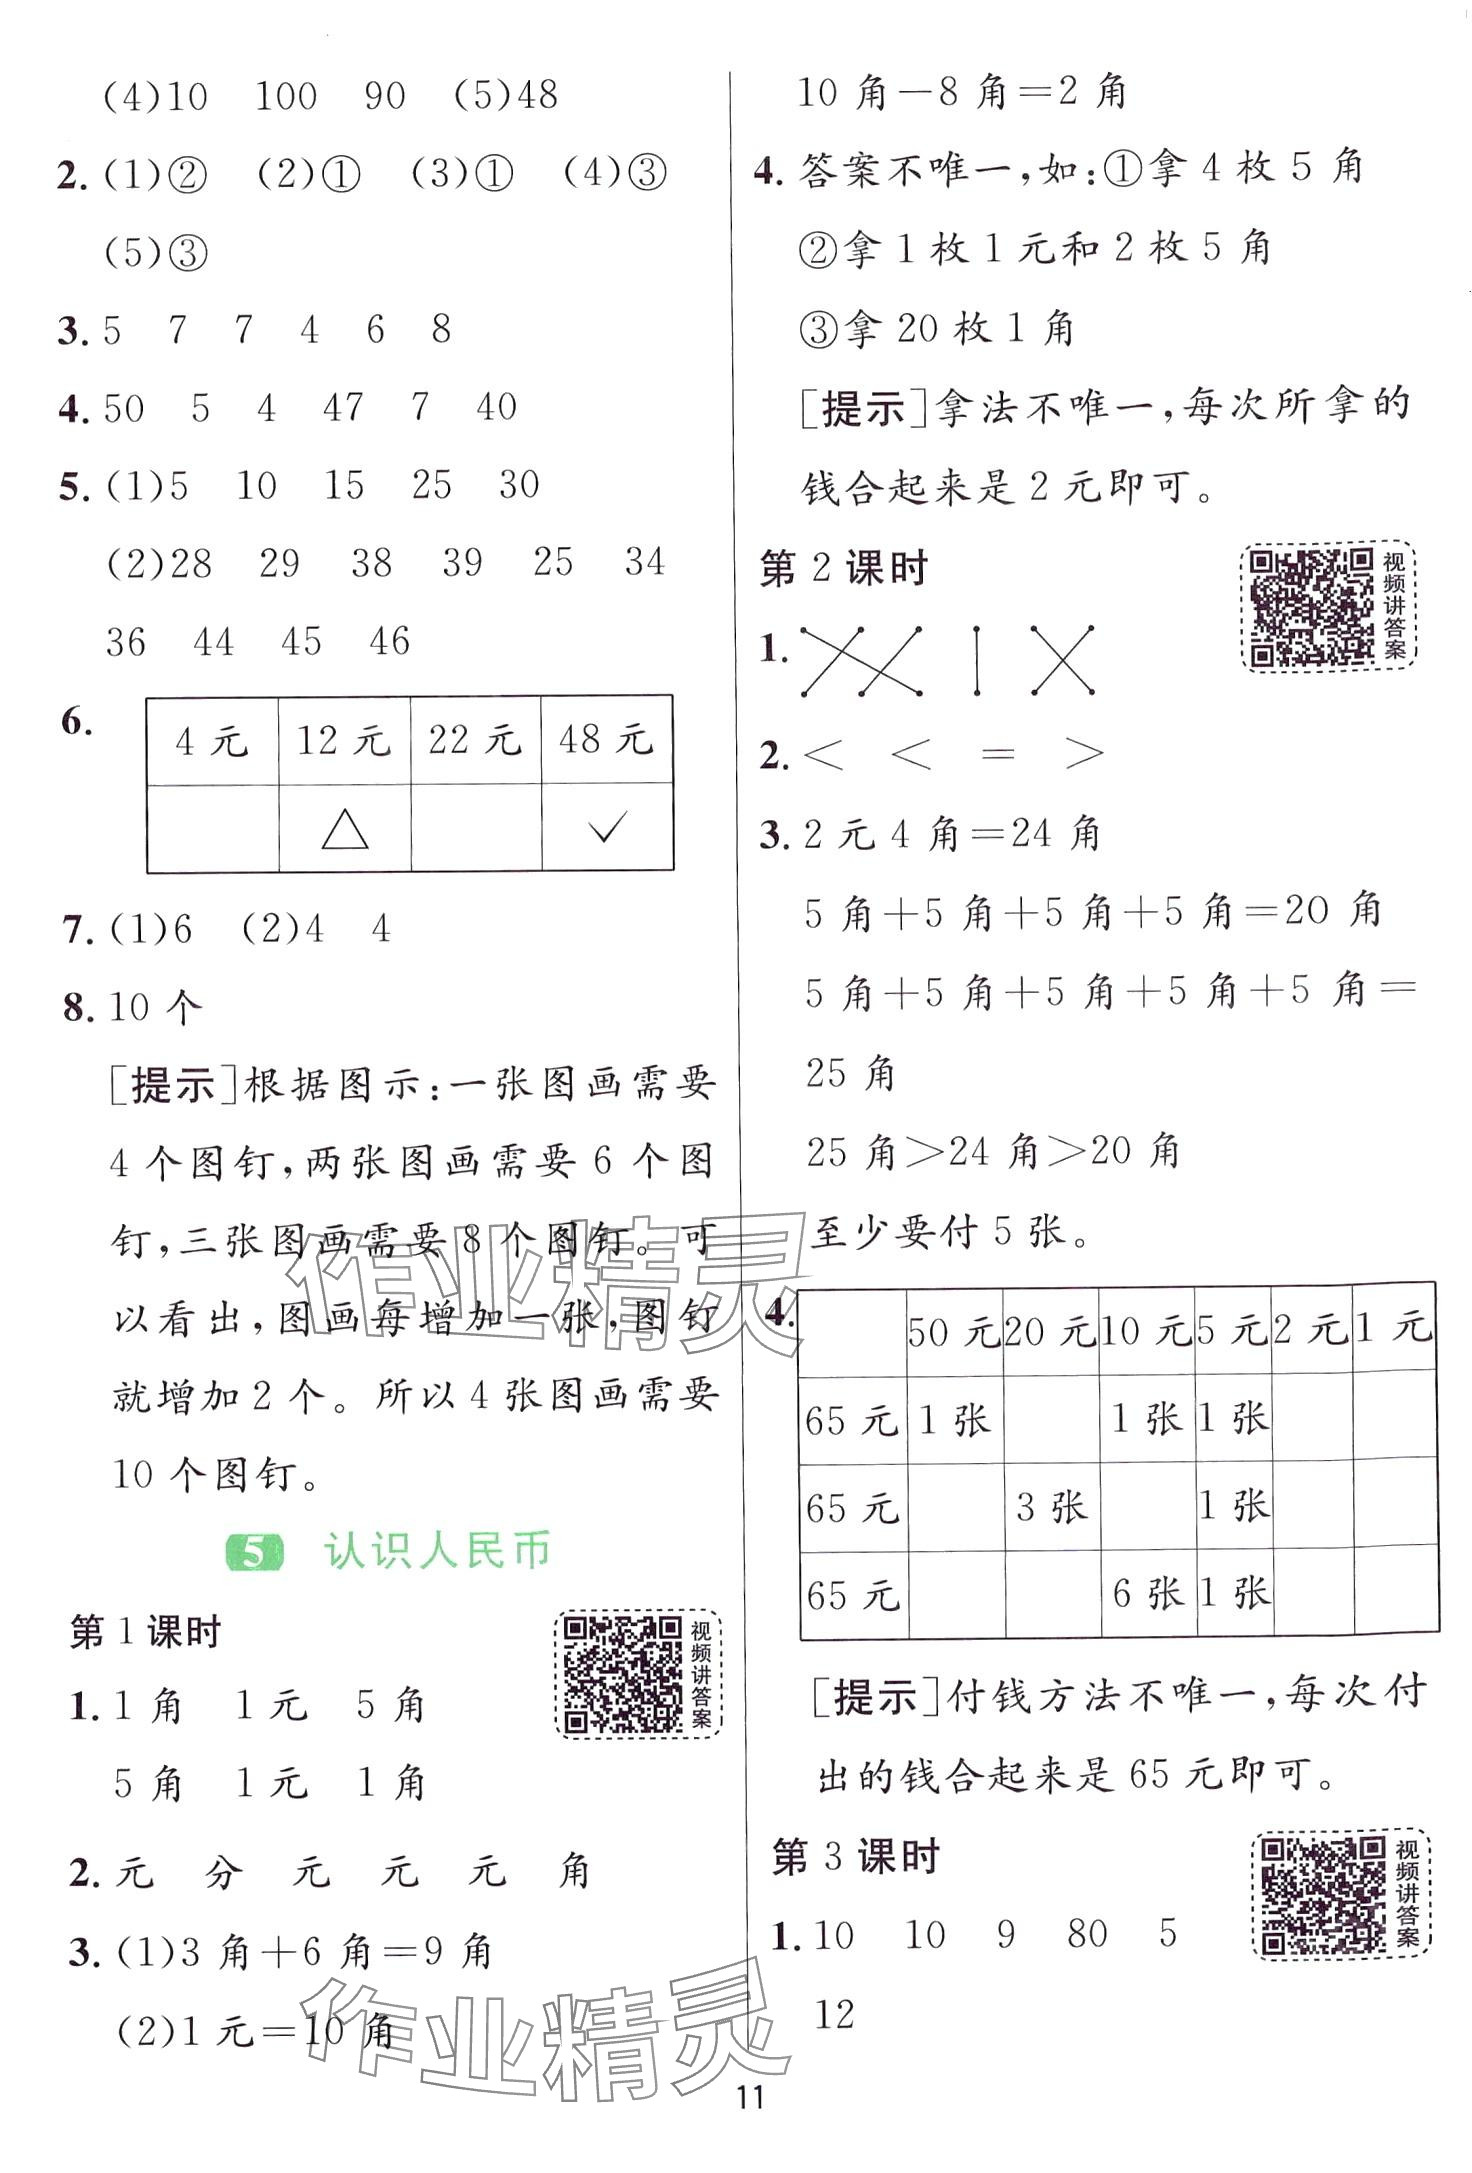 (4)10 100 90 (5)48
2. (1)② (2)① (3)① (4)③
(5)③
3. 5 7 7 4 6 8
4. 50 5 4 47 7 40
5. (1)5 10 15 25 30
(2)28 29 38 39 25 34
36 44 45 46
6.
4 元 12 元 22 元 48 元
△ ✓
7. (1)6 (2)4 4
8. 10 个
[提示]根据图示:一张图画需要
4 个图钉,两张图画需要 6 个图
钉,三张图画需要 8 个图钉。可
以看出,图画每增加一张,图钉
就增加 2 个。所以 4 张图画需要
10 个图钉。
5 认识人民币
第 1 课时
视频讲答案
1. 1 角 1 元 5 角
5 角 1 元 1 角
2. 元 分 元 元 元 角
3. (1)3 角+6 角=9 角
(2)1 元=10 角
10 角-8 角=2 角
4. 答案不唯一,如:①拿 4 枚 5 角
②拿 1 枚 1 元和 2 枚 5 角
③拿 20 枚 1 角
[提示]拿法不唯一,每次所拿的
钱合起来是 2 元即可。
第 2 课时
视频讲答案
1.
2. < < = >
3. 2 元 4 角=24 角
5 角+5 角+5 角+5 角=20 角
5 角+5 角+5 角+5 角+5 角=
25 角
25 角>24 角>20 角
至少要付 5 张。
4.
50 元 20 元 10 元 5 元 2 元 1 元
65 元 1 张 1 张 1 张
65 元 3 张 1 张
65 元 6 张 1 张
[提示]付钱方法不唯一,每次付
出的钱合起来是 65 元即可。
第 3 课时
视频讲答案
1. 10 10 9 80 5
12
作业精灵
作业精灵
11